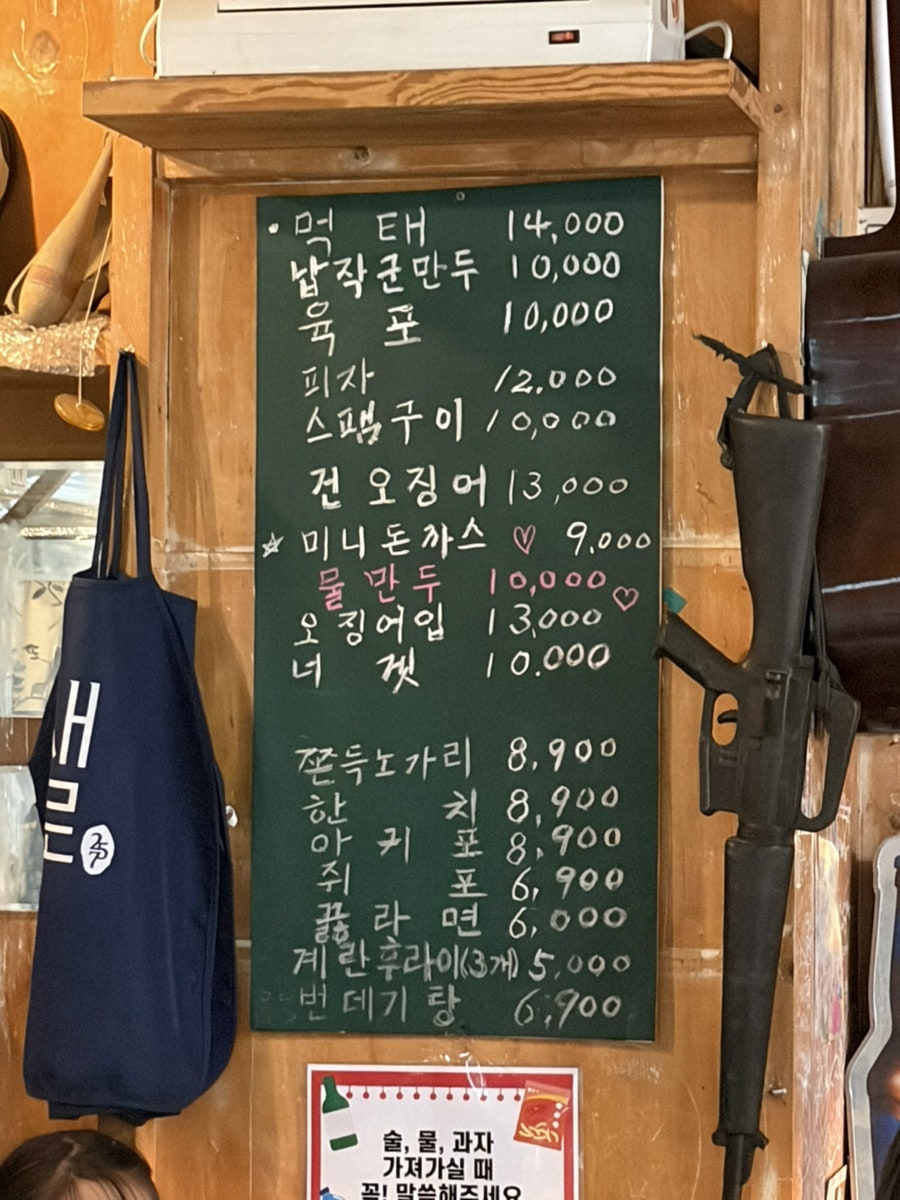 먹 태 14,000
납작군만두 10,000
육 포 10,000
피자 12,000
스팸구이 10,000
건 오징어 13,000
☆ 미니돈까스 ♡ 9,000
물만두 10,000 ♡
오징어입 13,000
너 겟 10.000
쫀득노가리 8,900
한 치 8,900
아 귀 포 8,900
쥐 포 6,900
끓라 면 6,000
계란후라이(3개) 5,000
번데기탕 6,900
술, 물, 과자
가져가실 때
꼭! 말씀해주세요